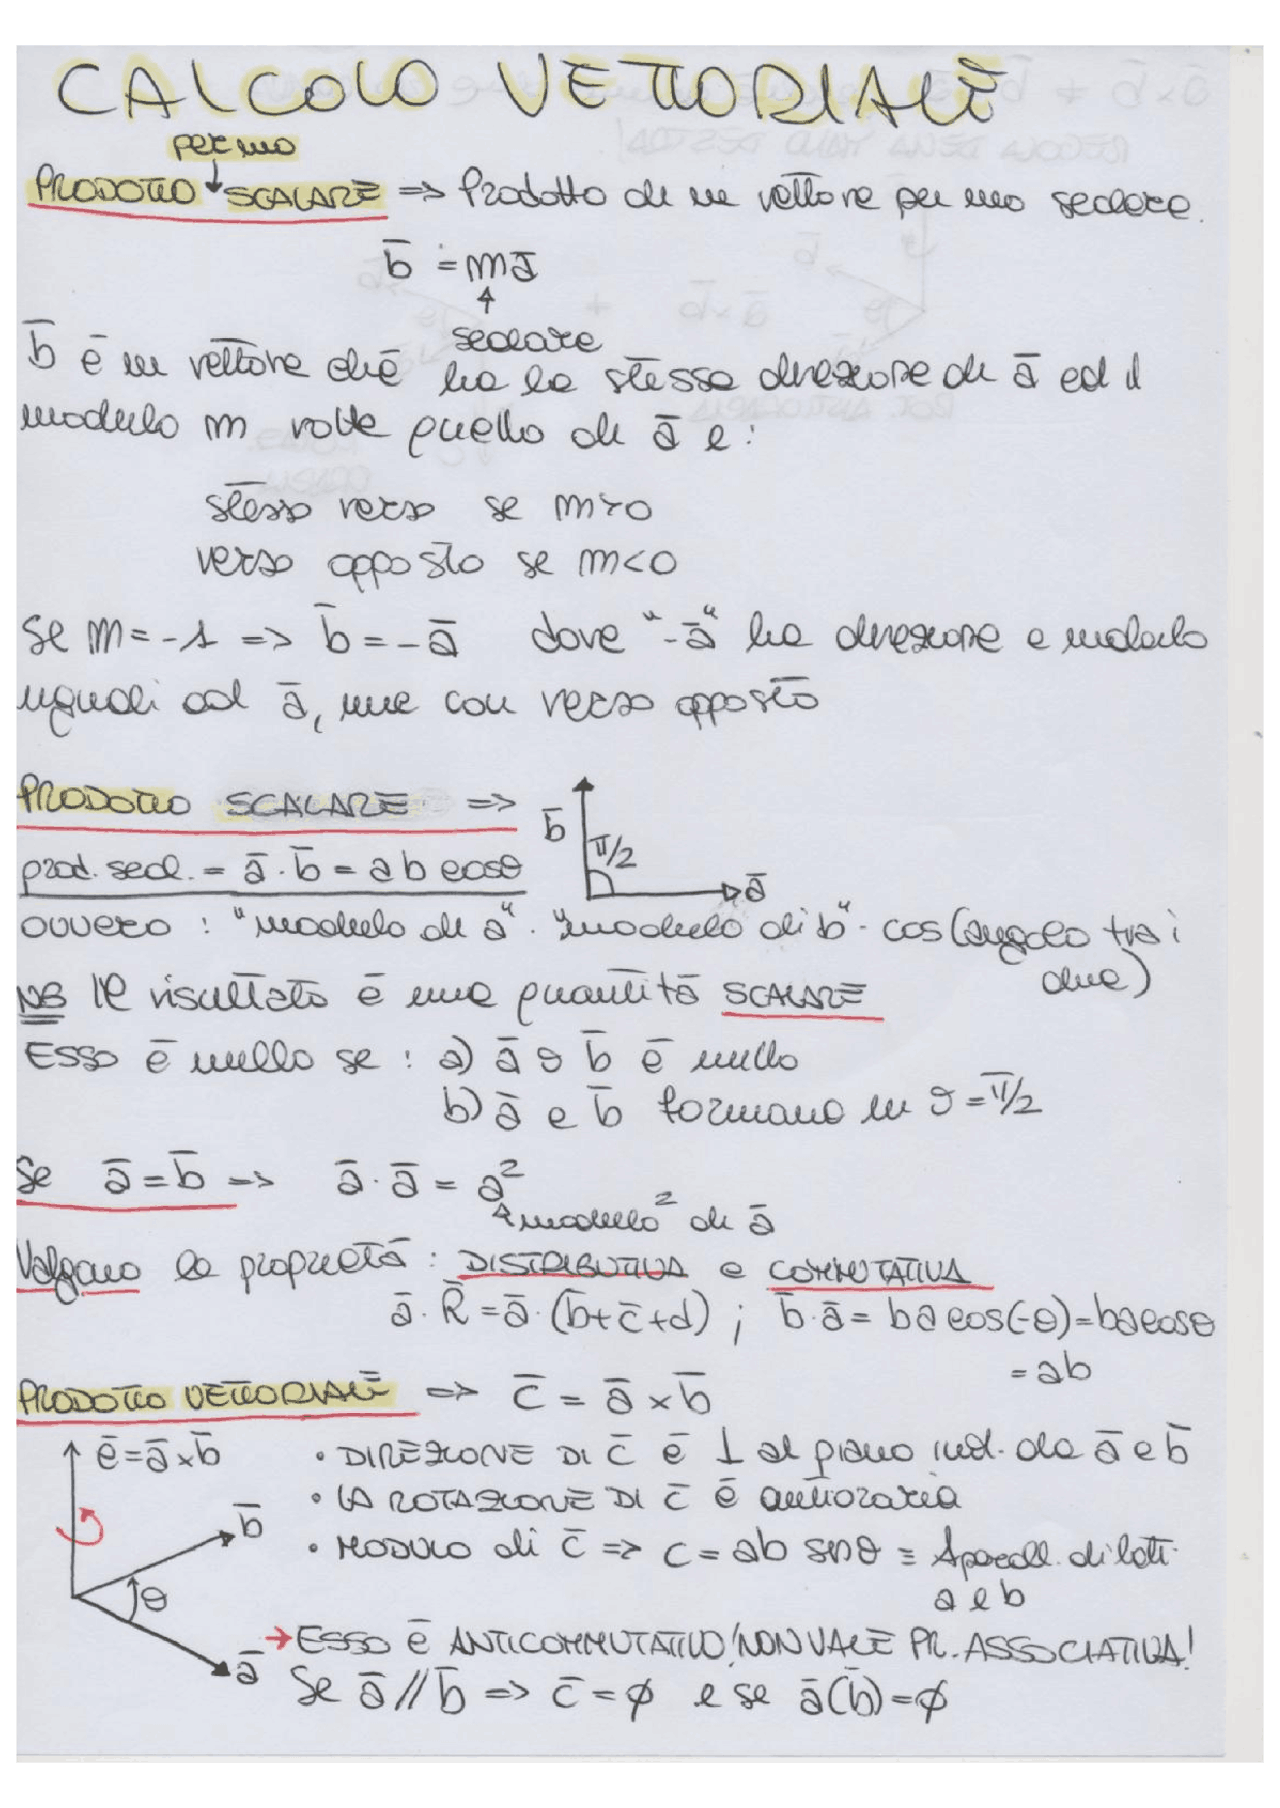 CALCOLO VETTORIALE
per uno
PRODOTTO ↓ SCALARE => Prodotto di un vettore per uno scalare.
b̄ = mā
↑
scalare
b̄ è un vettore che ha la stessa direzione di ā ed il
modulo m volte quello di ā e:
stesso verso se m>0
verso opposto se m<0
Se m=-1 => b̄=-ā dove "-ā" ha direzione e modulo
uguali ad ā, ma con verso opposto
PRODOTTO SCALARE =>
b̄ π/2 ā
prod. scal. = ā·b̄ = ab cosθ
ovvero: "modulo di a"·"modulo di b"·cos(angolo tra i
due)
NB Il risultato è una quantità SCALARE
Esso è nullo se: a) ā o b̄ è nullo
b) ā e b̄ formano un θ=π/2
Se ā=b̄ => ā·ā = a²
↑ modulo² di ā
Valgono le proprietà: DISTRIBUTIVA e COMMUTATIVA
ā·R̄=ā·(b̄+c̄+d) ; b̄·ā= ba cos(-θ)=bacosθ
=ab
PRODOTTO VETTORIALE => c̄ = ā×b̄
c̄=ā×b̄
• DIREZIONE DI c̄ è ⊥ al piano ind. da ā e b̄
• LA ROTAZIONE DI c̄ è antioraria
b̄
• MODULO di c̄ => c = ab senθ ≡ Aparall. di lati
θ
a e b
→ ESSO è ANTICOMMUTATIVO! NON VALE PR. ASSOCIATIVA!
ā
Se ā // b̄ => c̄ = ø e se ā(b̄)=ø